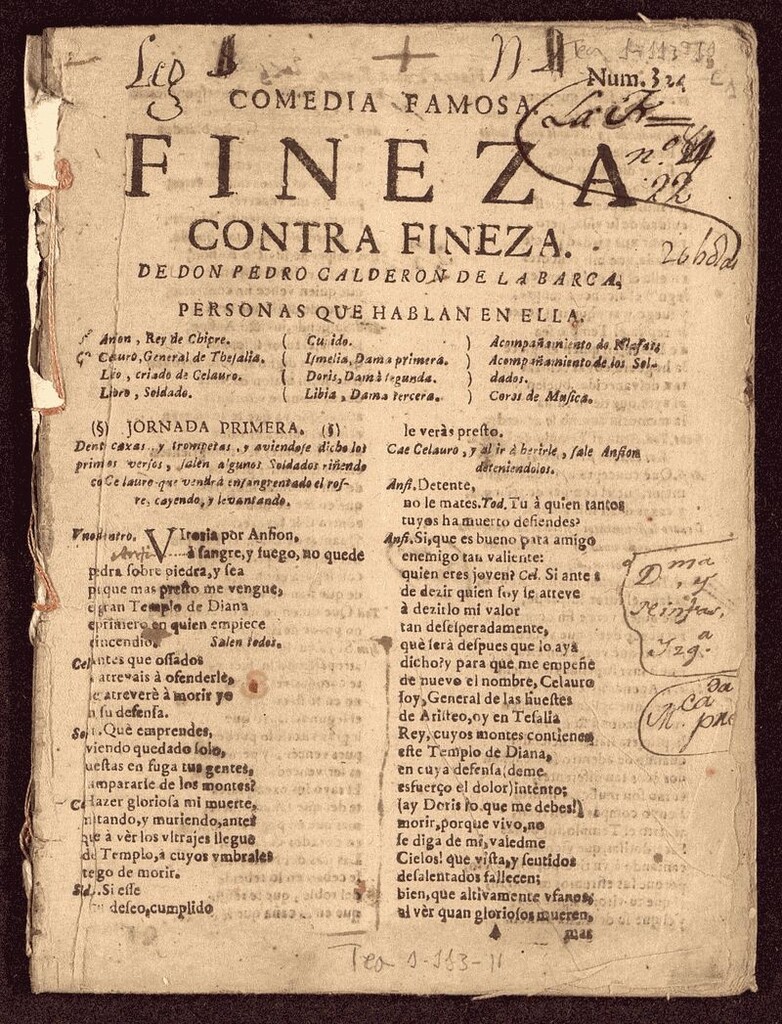 Leg
Tea 1-113-11
Num. 324
COMEDIA FAMOSA.
La Fr=
FINEZA
n.º
22
CONTRA FINEZA.
DE DON PEDRO CALDERON DE LA BARCA,
PERSONAS QUE HABLAN EN ELLA.
Anfion, Rey de Chipre. ( Cupido. ) Acompañamiento de Ninfas
Celauro, General de Thesalia. ( Ismelia, Dama primera. ) Acompañamiento de los Sol-
Lèo, criado de Celauro. ( Doris, Dama segunda. ) dados.
Libro, Soldado. ( Libia, Dama tercera. ) Coros de Musica.
(§) JORNADA PRIMERA. (§)
Dent caxas, y trompetas, y aviendose dicho los
primos versos, salen algunos Soldados riñendo
co Celauro que vendrà ensangrentado el ros-
tre, cayendo, y levantando.
Vno dentro. VItoria por Anfion.
à sangre, y fuego, no quede
pedra sobre piedra, y sea
p que mas presto me vengue,
e gran Templo de Diana
e primero en quien empiece
e incendio. Salen todos.
Cel. Antes que ossados
atrevais à ofenderle,
e atreverè à morir yo
n su defensa.
Sol. Què emprendes,
viendo quedado solo,
uestas en fuga tus gentes,
ampararse de los montes?
Cel. Hazer gloriosa mi muerte,
matando, y muriendo, antes
que à vèr los vltrajes llegue
de Templo, à cuyos vmbrales
tego de morir.
Sol. Si esse
tu deseo, cumplido
le veràs presto.
Cae Celauro, y al ir à herirle, sale Anfion
deteniendolos.
Anfi. Detente,
no le mates. Tod. Tu à quien tantos
tuyos ha muerto defiendes?
Anfi. Si, que es bueno para amigo
enemigo tan valiente:
quien eres joven? Cel. Si antes
de dezir quien soy se atreve
à dezirlo mi valor
tan desesperadamente,
què serà despues que lo aya
dicho? y para que me empeñe
de nuevo el nombre, Celauro
soy, General de las huestes
de Aristeo, oy en Tesalia
Rey, cuyos montes contienen
este Templo de Diana,
en cuya defensa (deme
esfuerço el dolor) intento;
(ay Doris lo que me debes!)
morir, porque vivo, no
se diga de mi, valedme
Cielos! que vista, y sentidos
desalentados fallecen;
bien, que altivamente vfanos,
al vèr quan gloriosos mueren,
mas
D.ma y
Ninfas,
Izq.a
Tea 1-113-11